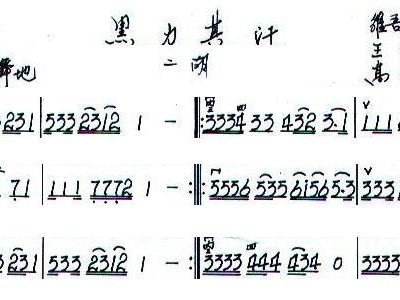 黑力其汗
二胡
王
231 | 533 2312 1 - :‖: 3334 33 432 3·1 | 111
71 | 111 7772 1 - :‖: 5556 535 6156 5·3 | 333
231 | 533 2312 1 - :‖: 3333 444 434 0 | 3333